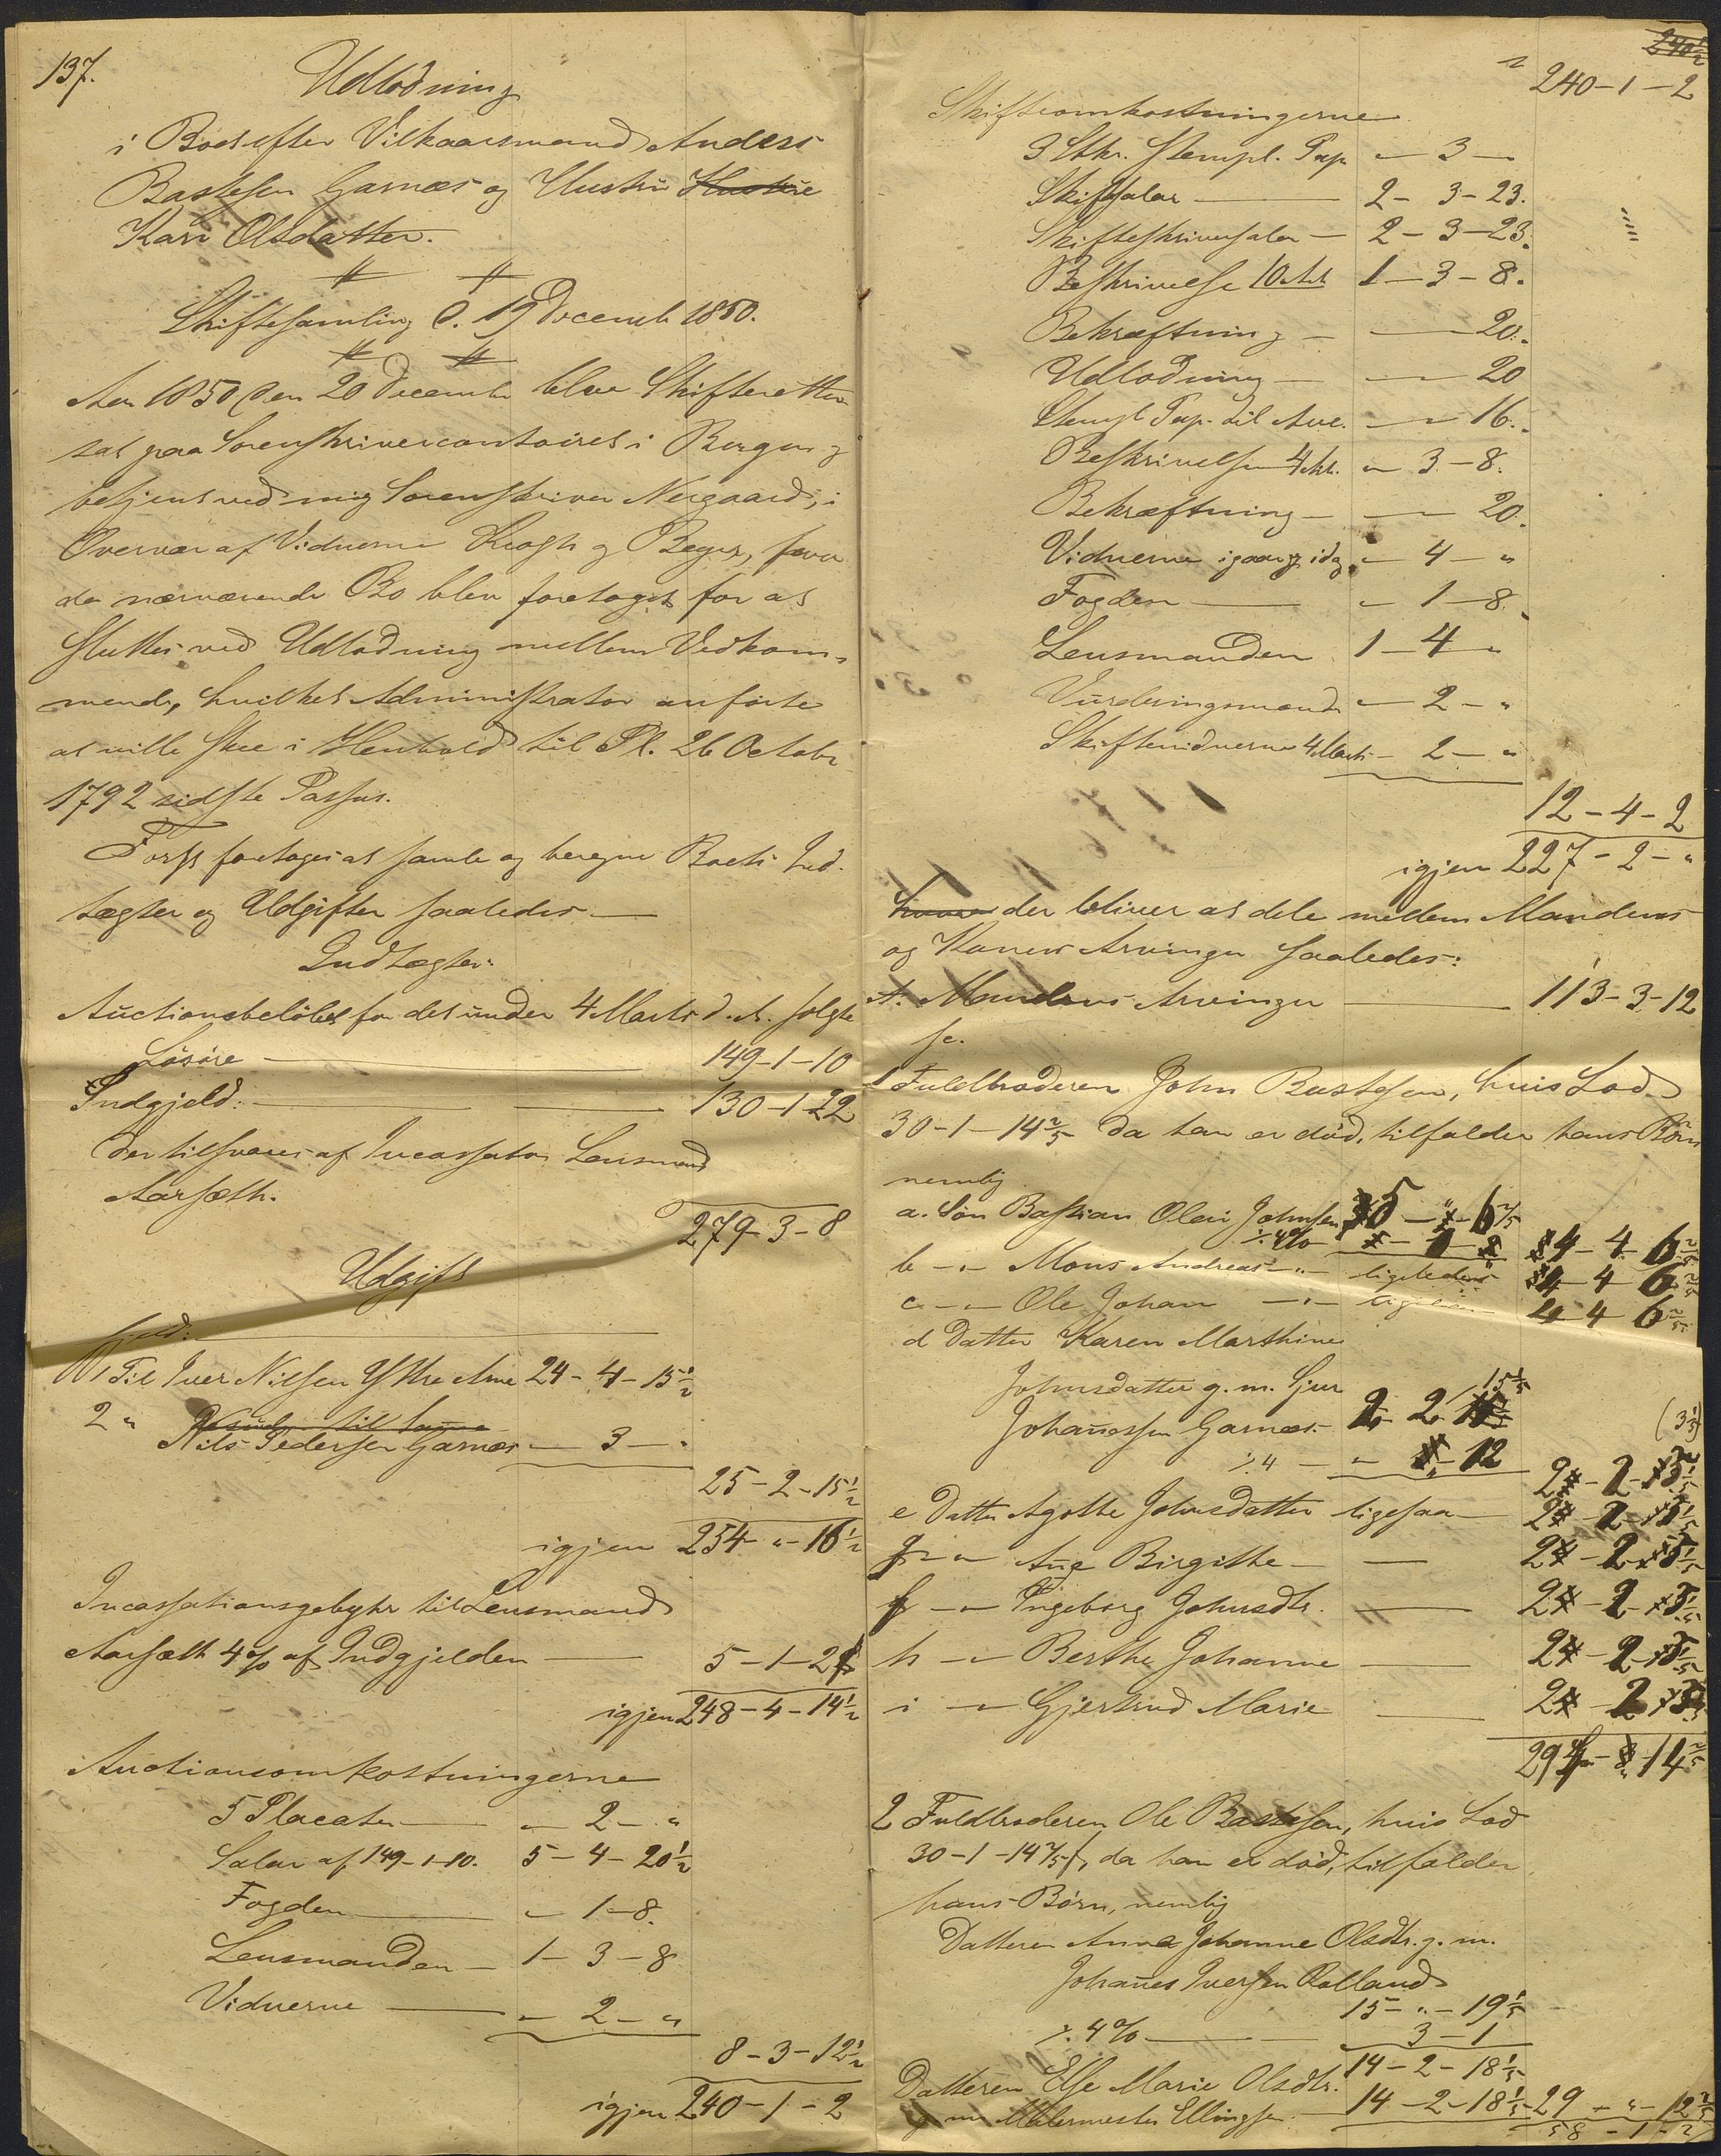 137.
Udlodning
i Boet efter Vilkaarsmand Anders
Bastesen Garnæs og Hustru Hustrue
Kari Olsdatter.
Skiftesamling d. 19 Decemb 1850.
Aar 1850 den 20 Decembr blev Skifteretten
sat paa Sorenskrivercontoiret i Bergen og
betjent ved mig Sorenskriver Nergaard, i
Overvær af Vidnerne Krogh og Beyer, hvor
da nærværende Bo blev foretaget for at
sluttes ved Udlodning mellem Vedkom-
mende, hvilket Administrator anførte
at ville skee i Henhold til Pl. 26 Octobr
1792 sidste Passus.
Først foretoges at samle og beregne Boets Ind-
tægter og Udgifter saaledes
Indtægter:
Auctionsbeløbet for det under 4 Marts d. A. solgte
Løsøre 149-1-10
Indgjeld: 130-1-22
der tilsvares af Incassator Lensmand
Aarsæth.
279-3-8
Udgift
Gjeld:
1 Til Iver Nilsen Ythre Arne 24-4-15½
2 "
Nils Pedersen Garnæs - 3 - "
25-2-15½
igjen 254-"-16½
Incassationsgebyhr til Lensmand
Aarsæth 4 % af Indgjelden 5-1-2
igjen 248-4-14½
Auctionsomkostningerne
5 Placater - 2 - "
Salar af 149-1-10. 5-4-20½
Fogden - 1-8.
Lensmanden 1-3-8
Vidnerne - 2 - "
8-3-12½
igjen 240-1-2
240½
240-1-2
Skifteomkostningerne
3 Stkr. Stempl. Pap - 3 -
Skiftsalar 2-3-23.
Skifteskriversalar 2-3-23.
Beskrivelse 10 Ark 1-3-8.
Bekræftning 20.
Udlodning 20
Stempl Pap. til Avc. 16.
Beskrivelsen 4 Ark. " 3-8.
Bekræftning 20.
Vidnerne igaar og idag " 4 - "
Fogden - 1-8.
Lensmanden 1-4 "
Vurderingsmænd - 2 - "
Skiftevidnerne 4 Marts - 2 - "
12-4-2
igjen 227-2-"
hvoraf der bliver at dele mellem Mandens
og Konens Arvinger saaledes:
A. Mandens Arvinger 113-3-12
sc.
1 Fuldbroderen John Bastesen, hvis Lod
30-1-14⅖ da han er død, tilfalder hans Børn
nemlig
a. Søn Bastian Olai Johnsen 5-"-6⅖
÷ 4%
4-4-6⅖
b - " Mons Andreas - " - ligeledes 4-4-6⅖
c - " Ole Johan - " - ligeledes 4-4-6⅖
d Datter Karen Marthine
Johnsdatter g. m. Gjur
Johannessen Garnæs. 2-2-15⅕
÷ 4 - " - 12
(3⅕)
2-2-3⅕
e Datter Agathe Johnsdatter ligesaa 2-2-3⅕
f - " Ane Birgithe 2-2-3⅕
g - " Ingeborg Johnsdtr. 2-2-3⅕
h - " Berthe Johanne 2-2-3⅕
i - " Gjertrud Marie 2-2-3⅕
29
14⅖
2 Fuldbroderen Ole Bastesen, hvis Lod
30-1-14⅖, da han er død, tilfalder
hans Børn, nemlig
Datteren Anna Johanne Olsdtr. g. m.
Johannes Iversen Rolland
15-"-19⅕
÷ 4% 3-1
14-2-18⅕
Datteren Else Marie Olsdtr.
g m Malermester Ellingsen 14-2-18⅕ 29-"-12⅖
58-1-2